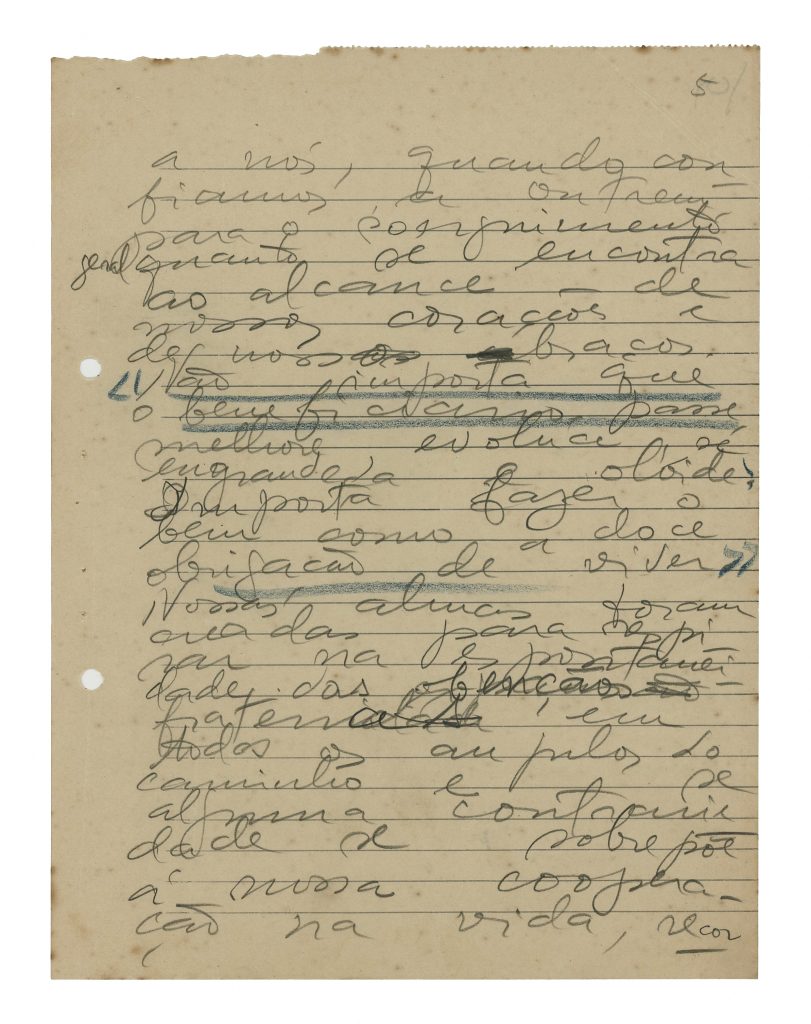 5
a nós, quando con
fiamos, a outrem,
para o seguimento
geral quanto se encontra
ao alcance de
nossos corações e
de nossos braços.
"Não importa que
o beneficiário passe
melhore evolua se
engrandeça e olvide!
Importa fazer o
bem como a doce
obrigação de viver"
Nossas almas foram
creadas para respi
rar na espontanei-
dade das obrigações
fraternais, em
todos os angulos do
caminho e se
alguma contrarie
dade se sobrepõe
á nossa coopera-
ção na vida, recor